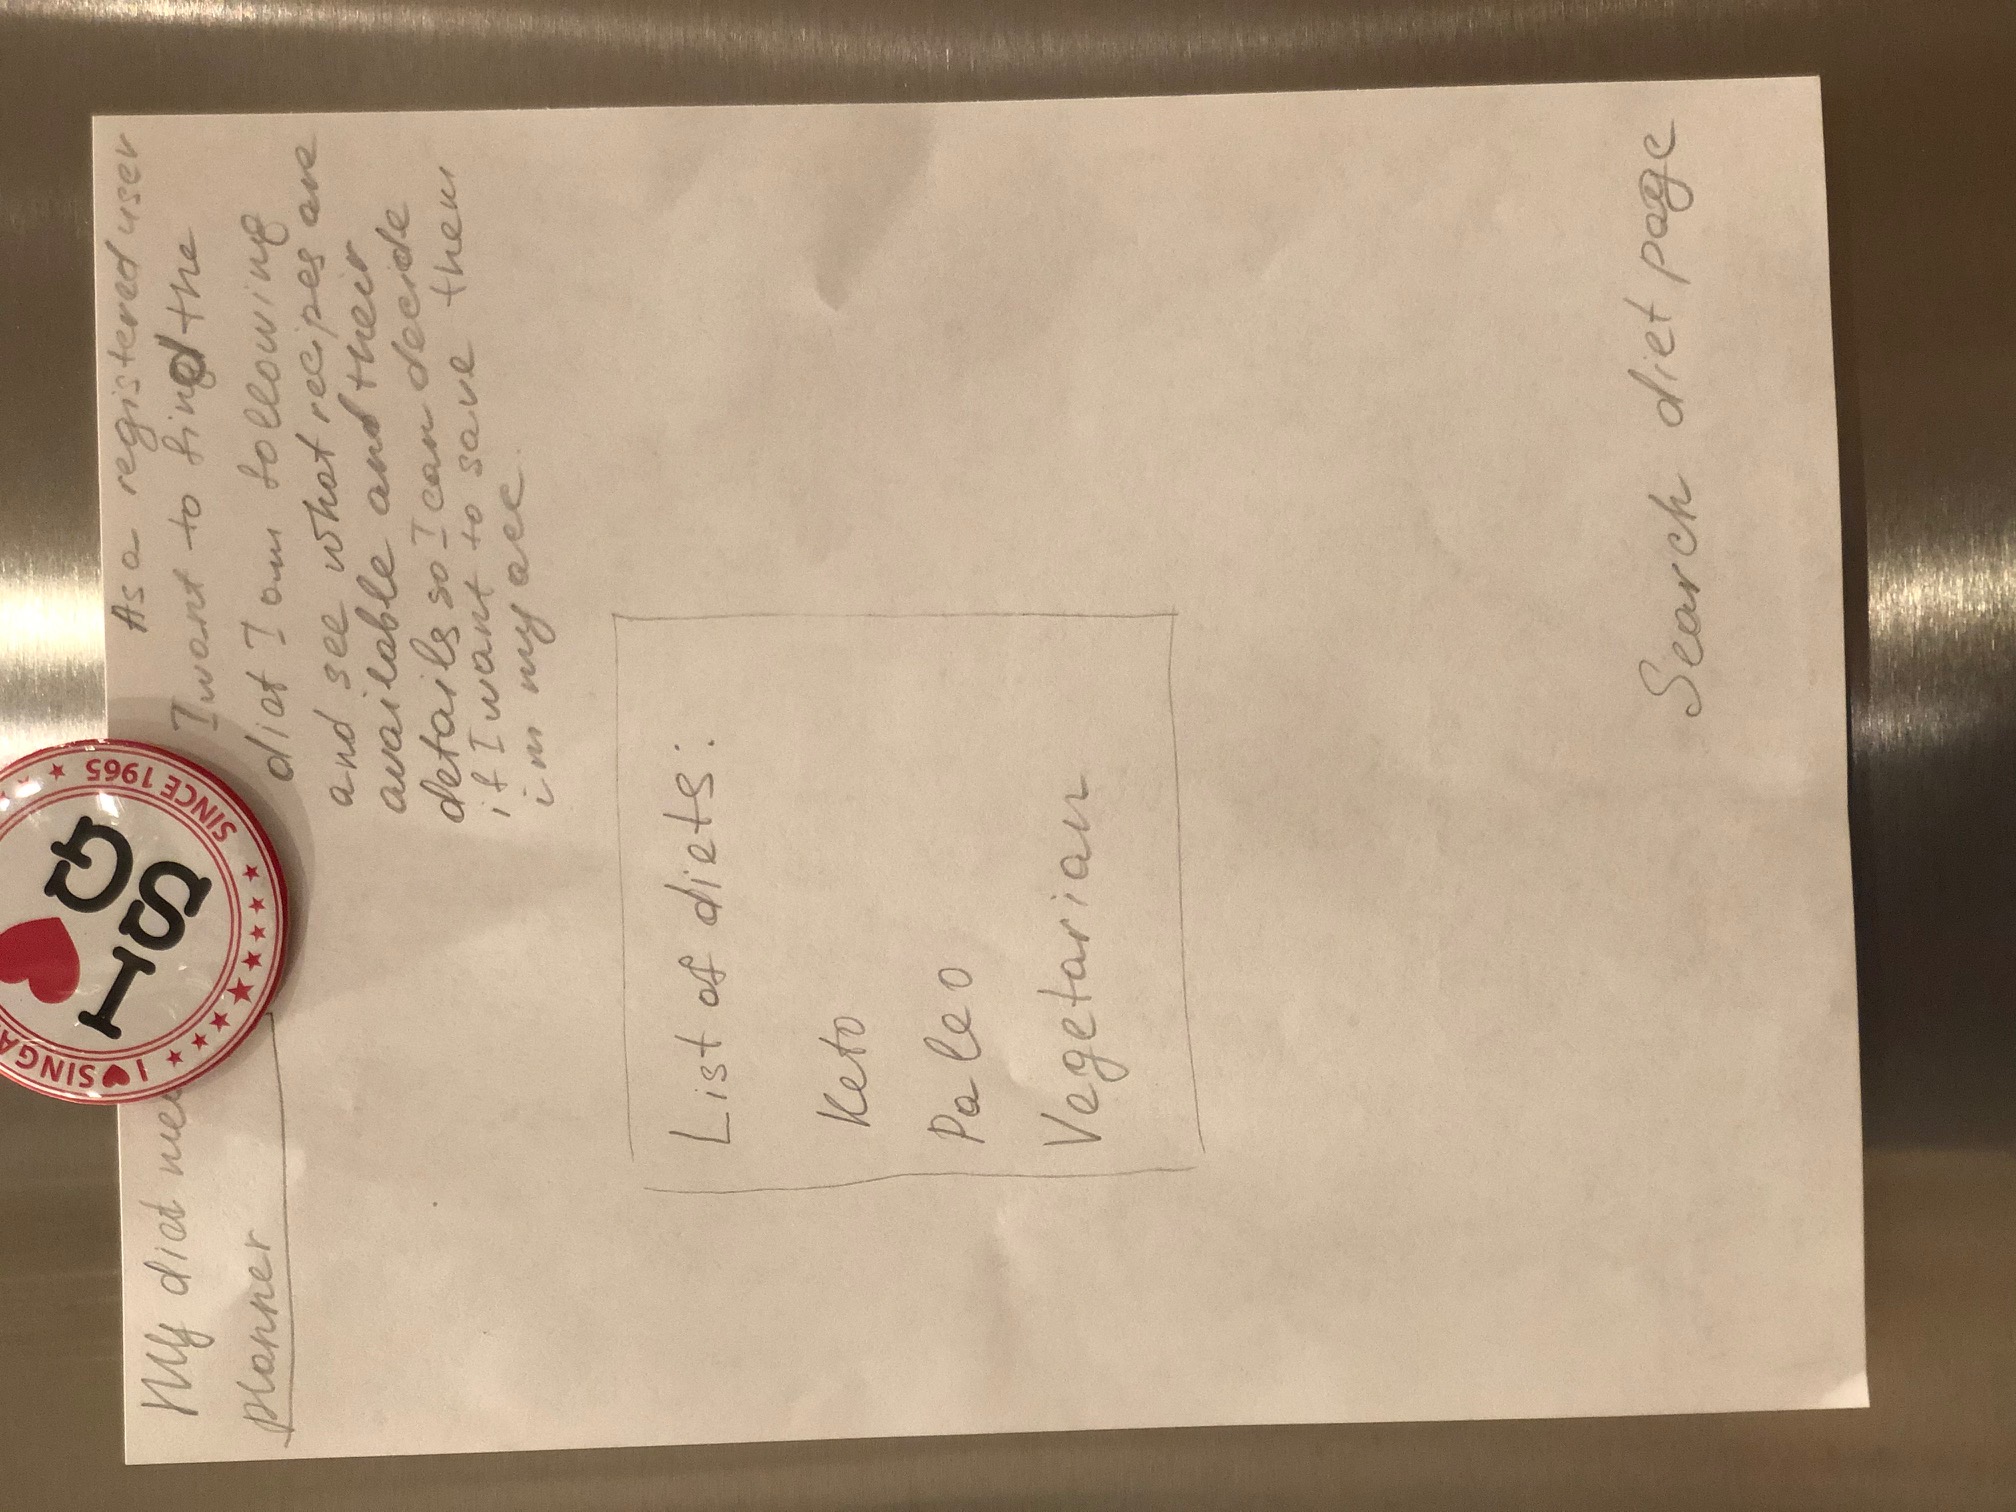 My diet
planner
I ♥ SG
I ♥ SINGA
SINCE 1965
As a registered user
I want to find the
diet I am following
and see what recipes are
available and their
details so I can decide
if I want to save them
im my acc.
List of diets:
Keto
Paleo
Vegetarian
Search diet page